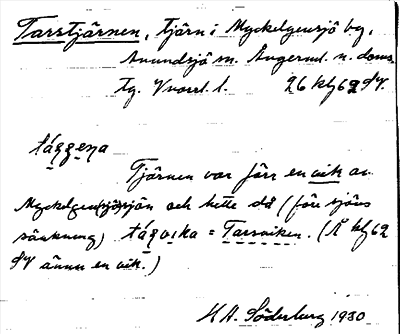 Tarstjärnen, tjärn i Myckelgensjö by,
Anundsjö sn. Ångerml. n. doms.
tg. Y 26 klj 62 SV.
Tjärnen var förr en vik av
Myckelgensjösjön och hette då (före sjöns
sänkning) = Tarsviken. (Å klj 62
SV ännu en vik.)
H. A. Söderberg 1930